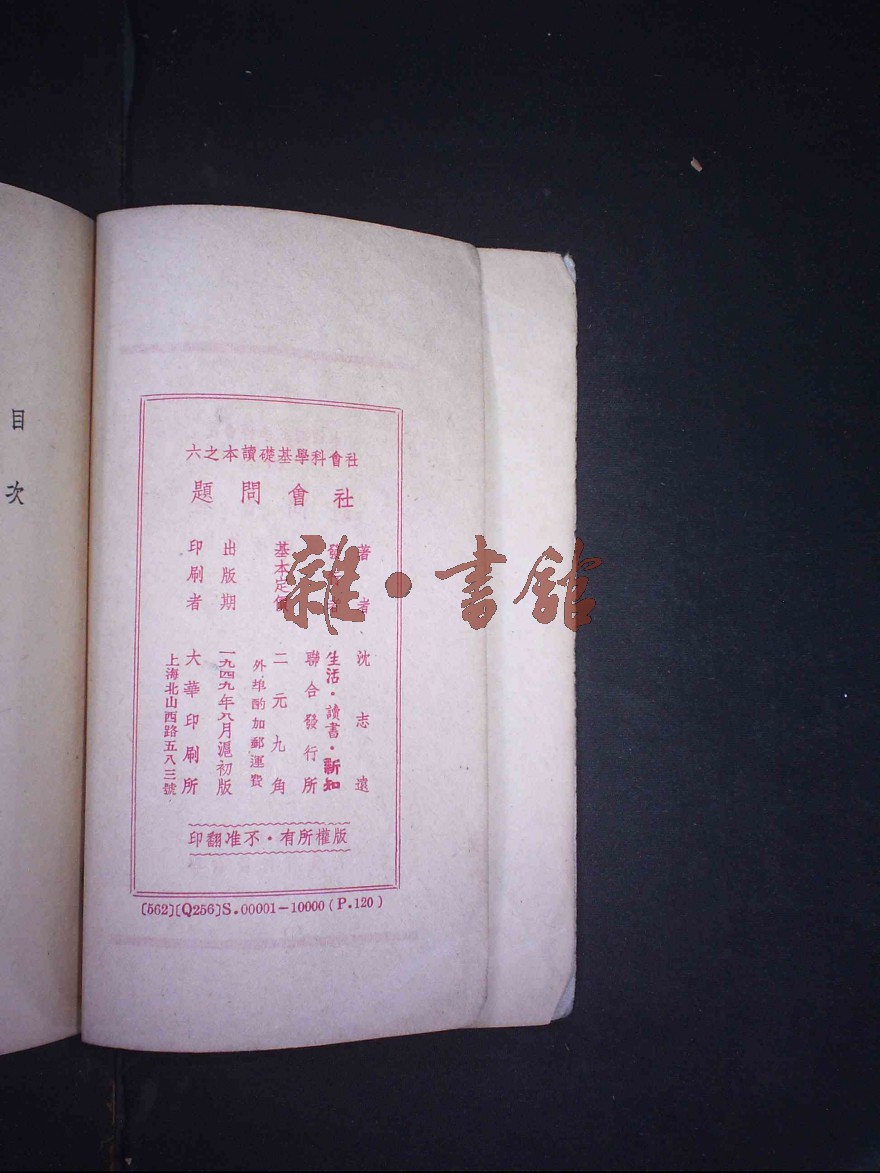 社會科學基礎讀本之六
社會問題
著者 沈志遠
生活·讀書·新知
聯合發行所
基本定價 二元九角
外埠酌加郵運費
出版期 一九四九年八月滬初版
印刷者 大華印刷所
上海北山西路五八三號
版權所有·不准翻印
[562][Q256]S.00001—10000(P.120)
目次
雜·書館